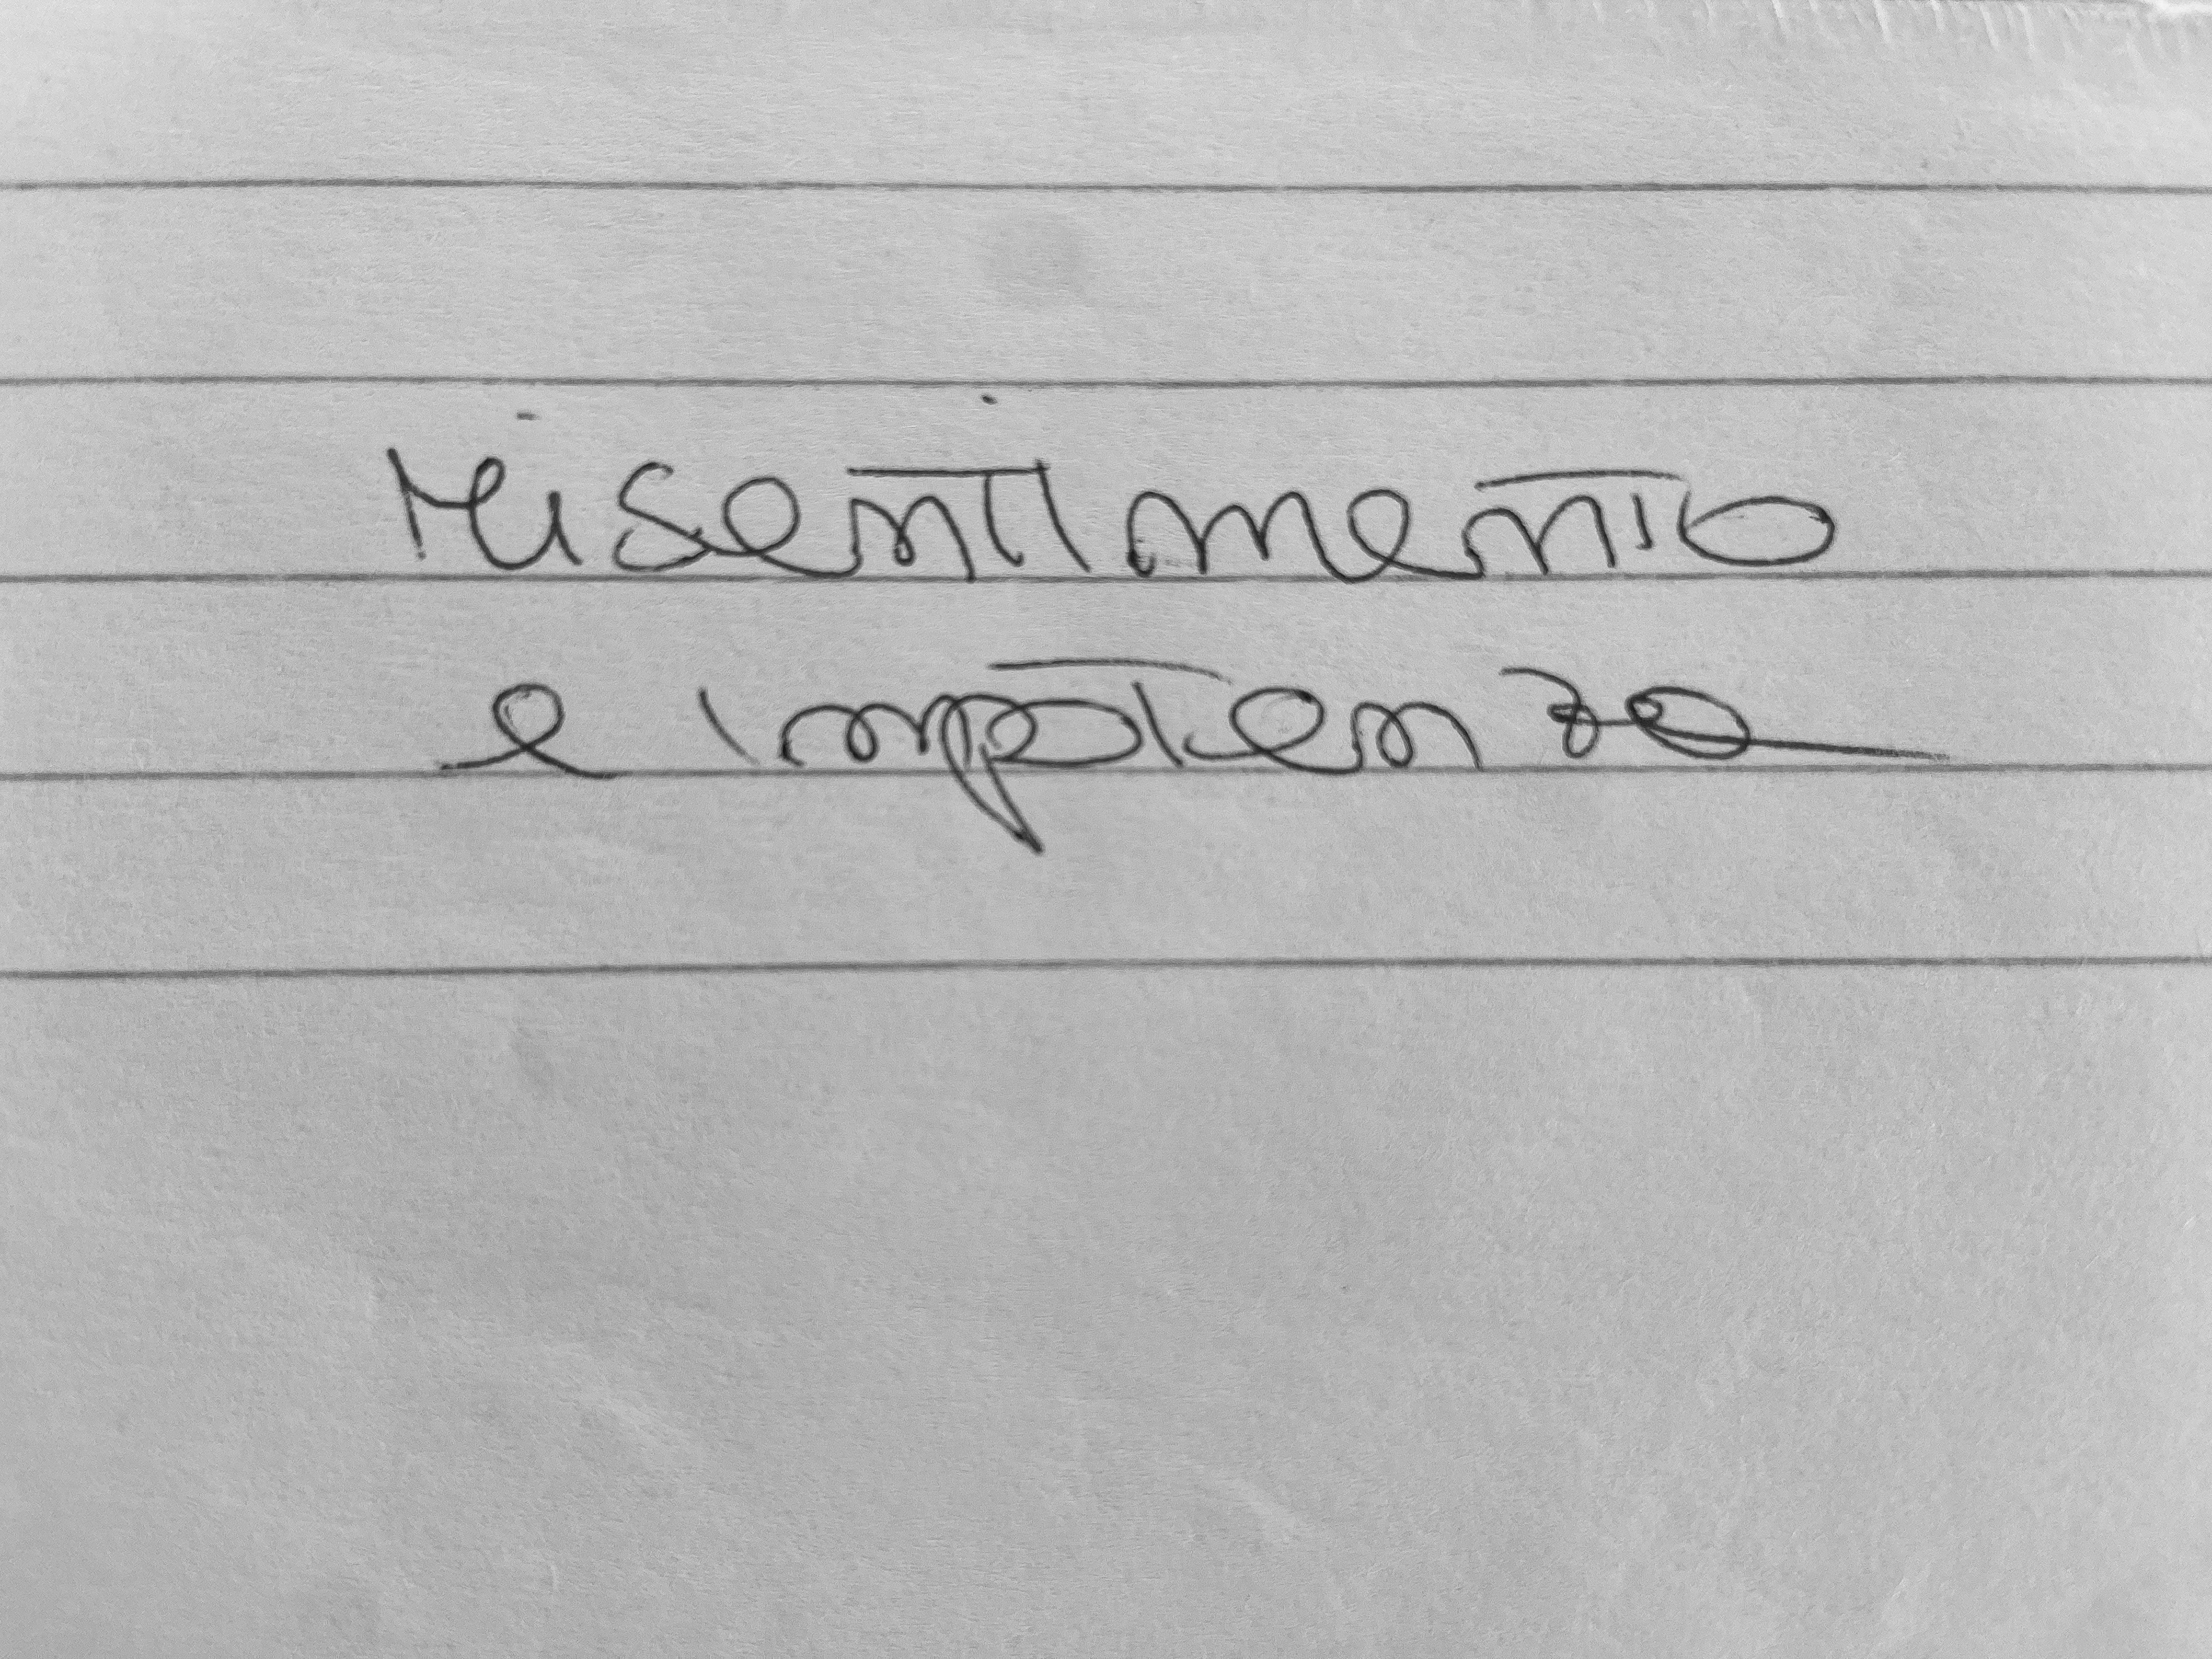 risentimento
e impotenza